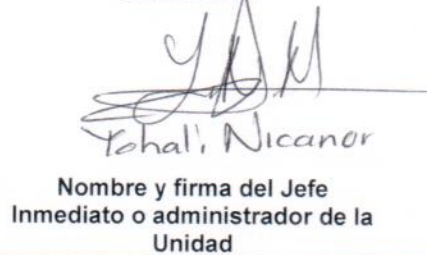 Yohali Nicanor
Nombre y firma del Jefe
Inmediato o administrador de la
Unidad